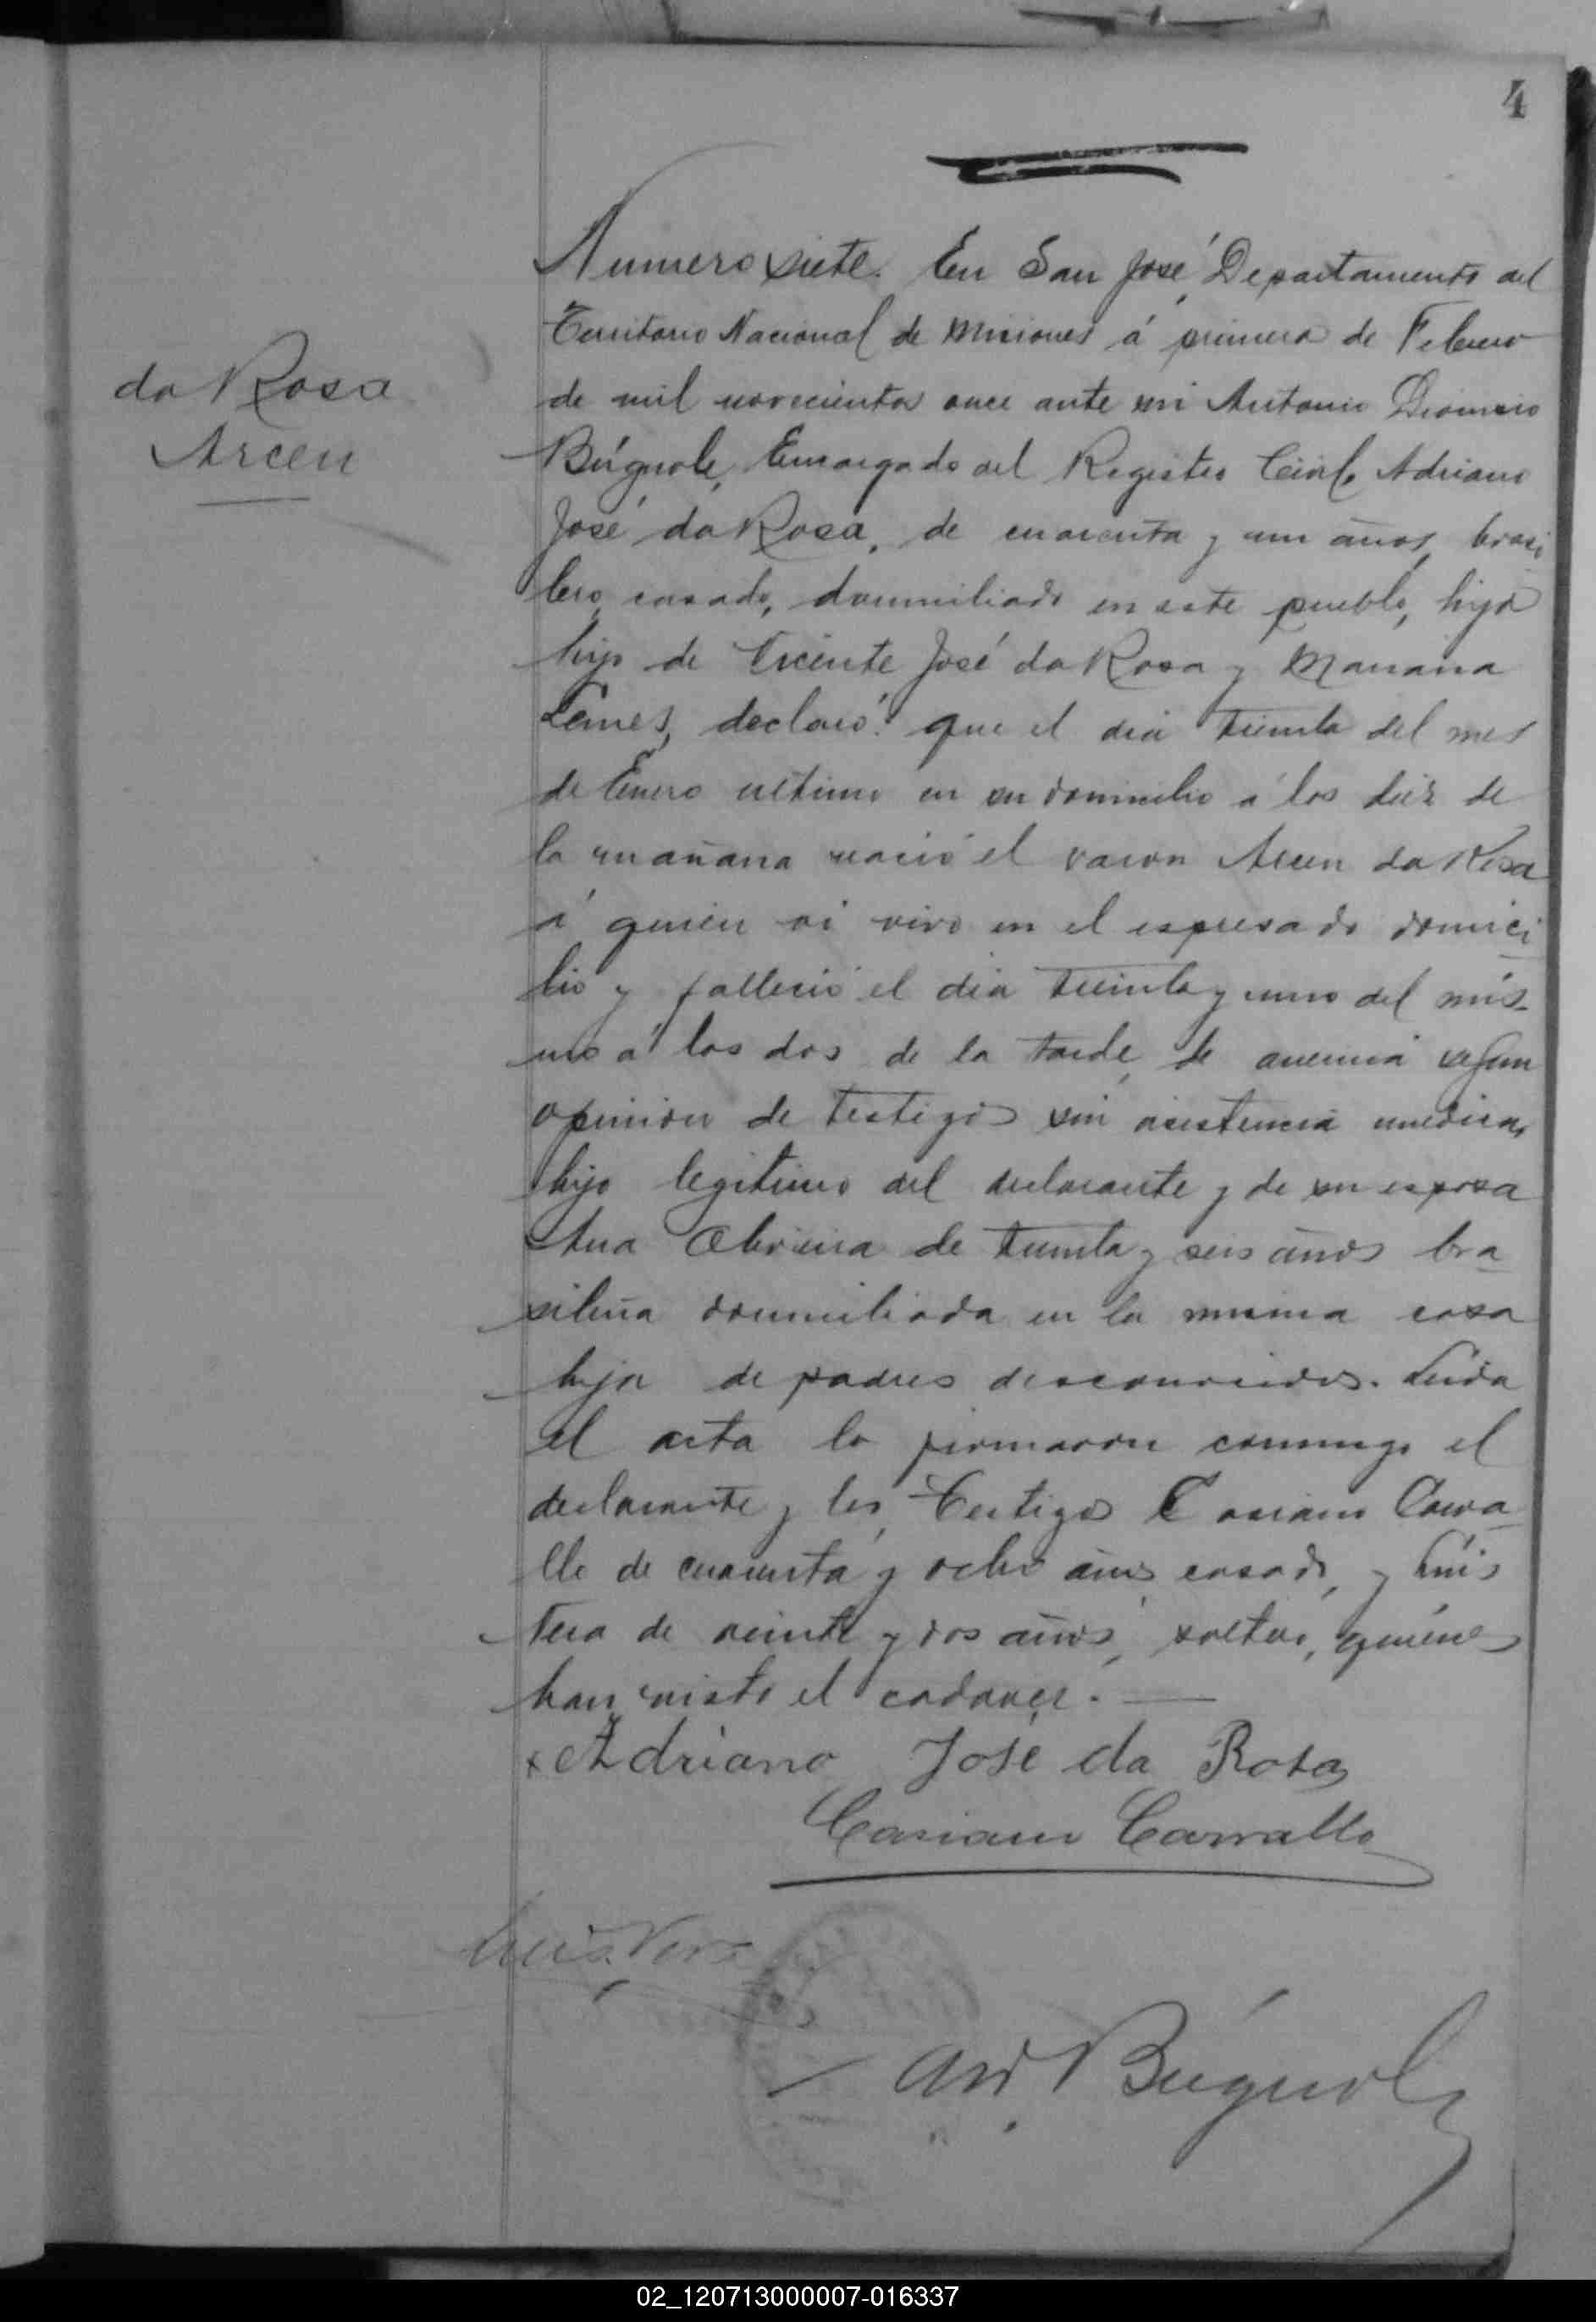 4
Numero siete. En San José, Departamento del
Territorio Nacional de Misiones á primero de Febrero
da Rosa
Arcen
de mil novecientos once ante mi Antonio Dionisio
Búgnole, Encargado del Registro Civil, Adriano
José da Rosa, de cuarenta y un años, brasi
lero, casado, domiciliado en este pueblo, hijo
hijo de Vicente José da Rosa y Mariana
Lemes, declaró: que el dia treinta del mes
de Enero ultimo en su domicilio á las diez de
la mañana nació el varon Arcen da Rosa
á quien vi vivo en el espresado domici
lio y falleció el dia treinta y uno del mis-
mo á las dos de la tarde, de anemia segun
opinion de testigos sin asistencia medica,
hijo legitimo del declarante y de su esposa
Ana Oliveira de treinta y seis años bra
sileña domiciliada en la misma casa
hija de padres desconocidos. Leida
el acta la firmaron conmigo el
declarante y los Testigos Casiano Carva
llo de cuarenta y ocho años, casado, y Luis
Vera de veinte y dos años, soltero, quienes
han visto el cadaver.
x Adriano José da Rosa
Casiano Carvallo
Luis Vera
Ant Búgnole
02_120713000007-016337